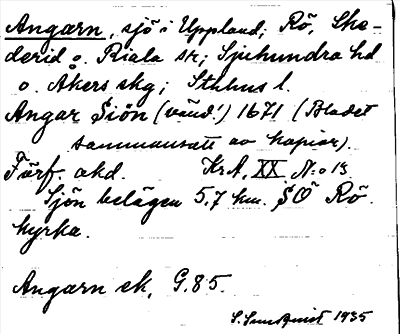 Angarn, sjö i Uppland, Rö, Ske-
derid o. Riala sr; Sjuhundra hd
o. Åkers skg; Sthlms l.
Angar Siön (väud!) 1671 (Bladet
sammansatt av kopior).
Förf. okd. KrA, XX N:o 13
Sjön belägen 5,7 km. SO Rö
kyrka.
Angarn ek, G.85.
S. Sundquist 1935